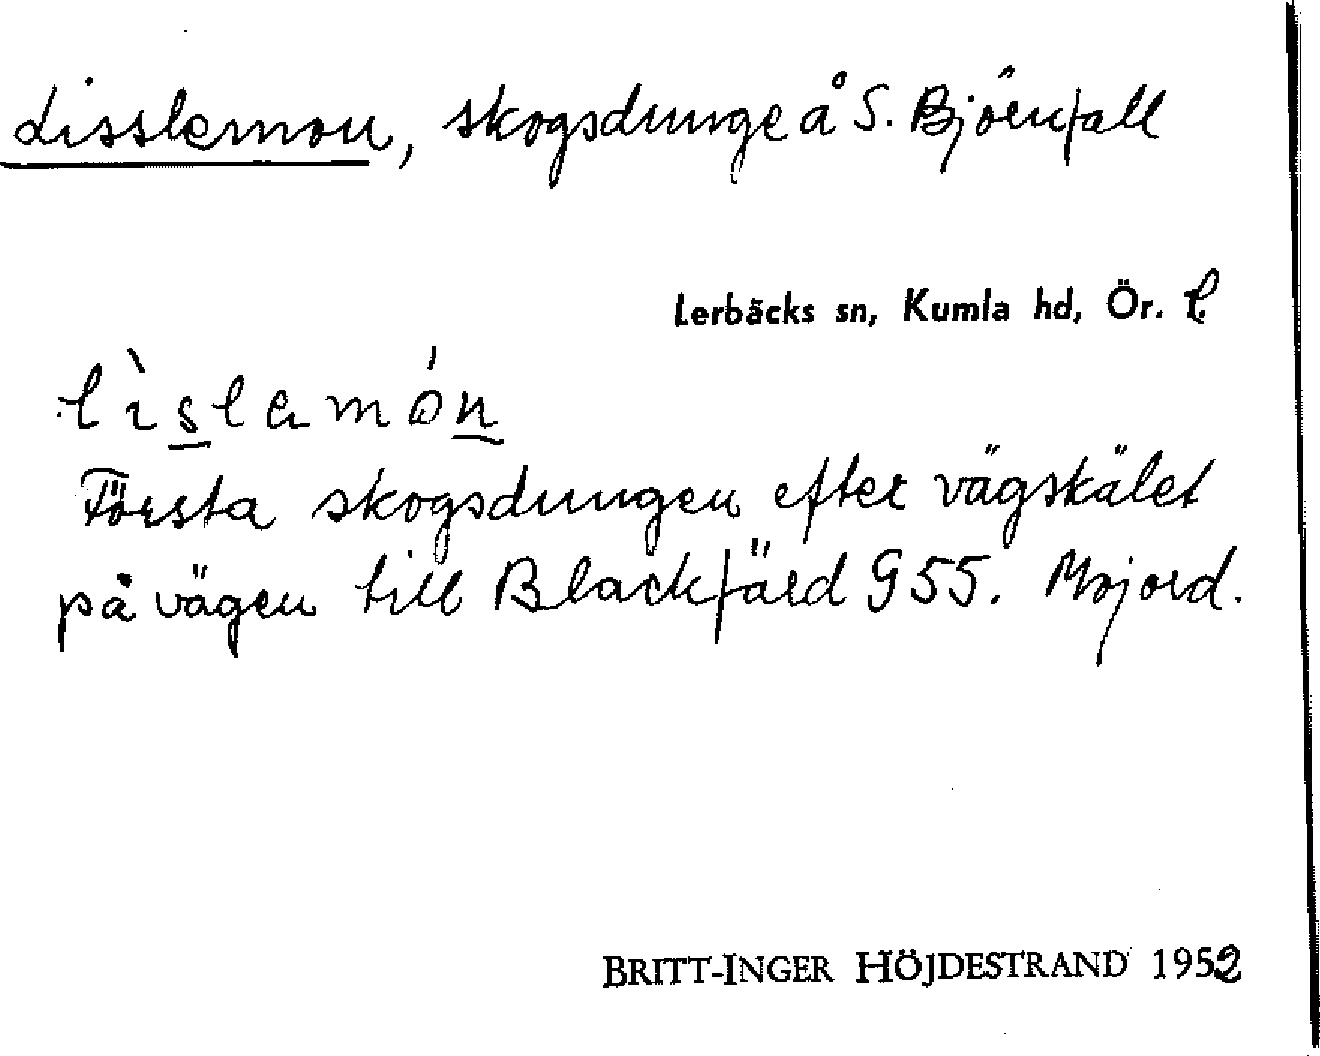 Lisslemon, skogsdunge å S. Björnfall
Lerbäcks sn, Kumla hd, Ör. l.
lìslamón
Första skogsdungen efter vägskälet
på vägen till Blackfärd 955. Mojord.
BRITT-INGER HÖJDESTRAND 1952